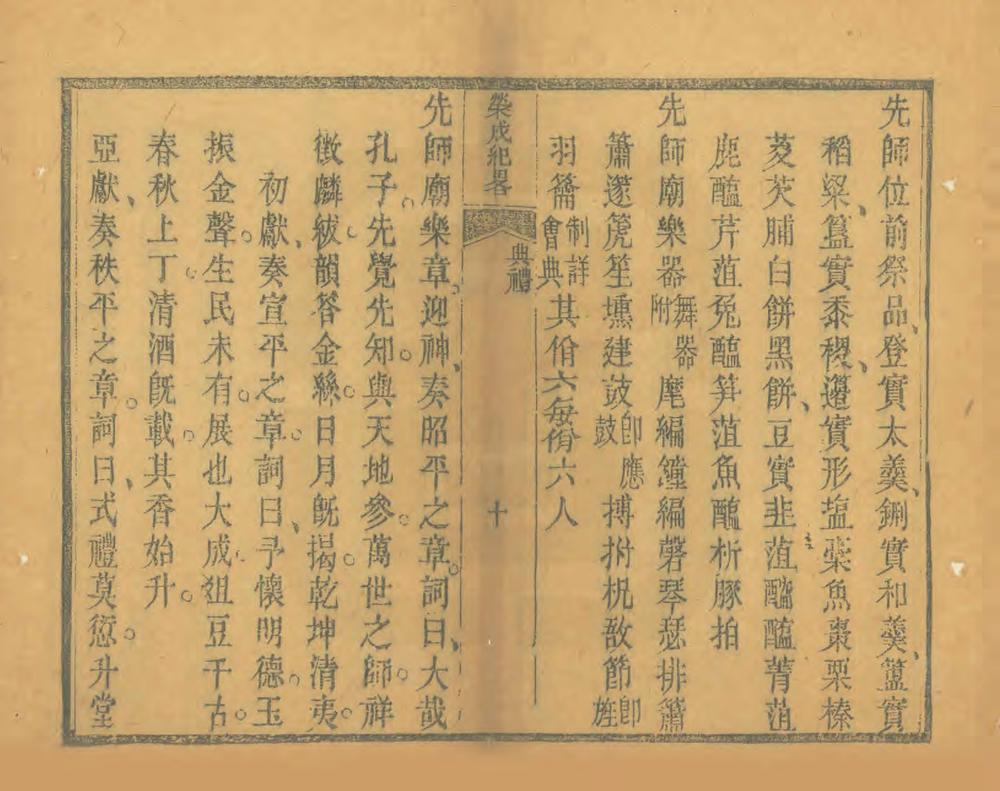 先師位前祭品、登實太羹、鉶實和羹、簠實
稻粱、簋實黍稷、籩實形塩槀魚棗栗榛
菱芡脯白餅黑餅、豆實韭菹醓醢菁菹
鹿醢芹菹兔醢笋菹魚醢析豚拍
先師廟樂器附舞器麾編鐘編磬琴瑟排簫
簫邃箎笙壎建鼓即應鼓搏拊柷敔節即旌
羽籥制詳會典其佾六每佾六人
榮成紀畧
典禮
十
先師廟樂章、迎神、奏昭平之章。詞曰、大哉
孔子。先覺先知。與天地參。萬世之師。祥
徵麟紱。韻答金絲。日月旣揭。乾坤清夷。
初獻、奏宣平之章。詞曰、予懷明德。玉
振金聲。生民未有。展也大成。俎豆千古。
春秋上丁。清酒旣載。其香始升。
亞獻、奏秩平之章。詞曰、式禮莫愆。升堂